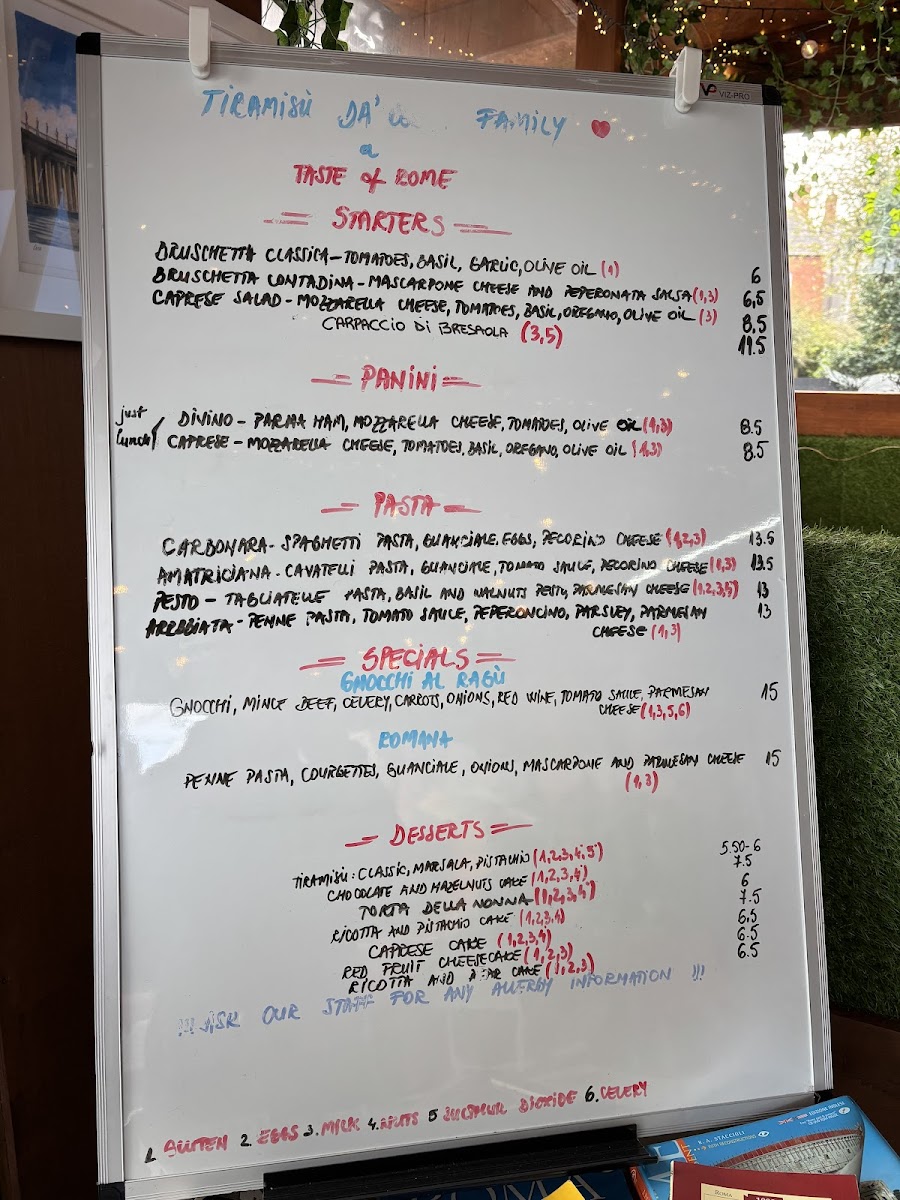 VIZ-PRO
TIRAMISÙ DA' FAMILY
a
TASTE of ROME
STARTERS
BRUSCHETTA CLASSICA - TOMATOES, BASIL, GARLIC, OLIVE OIL (1) 6
BRUSCHETTA CONTADINA - MASCARPONE CHEESE AND PEPERONATA SALSA (1,3) 6,5
CAPRESE SALAD - MOZZARELLA CHEESE, TOMATOES, BASIL, OREGANO, OLIVE OIL (3) 8,5
CARPACCIO DI BRESAOLA (3,5) 11.5
PANINI
just lunch
DIVINO - PARMA HAM, MOZZARELLA CHEESE, TOMATOES, OLIVE OIL (1,3) 8.5
CAPRESE - MOZZARELLA CHEESE, TOMATOES, BASIL, OREGANO, OLIVE OIL (1,3) 8.5
PASTA
CARBONARA - SPAGHETTI PASTA, GUANCIALE, EGGS, PECORINO CHEESE (1,2,3) 13.5
AMATRICIANA - CAVATELLI PASTA, GUANCIALE, TOMATO SAUCE, PECORINO CHEESE (1,3) 13.5
PESTO - TAGLIATELLE PASTA, BASIL AND WALNUTS PESTO, PARMESAN CHEESE 13
ARRABIATA - PENNE PASTA, TOMATO SAUCE, PEPERONCINO, PARSLEY, PARMESAN 13
CHEESE (1,3)
SPECIALS
GNOCCHI AL RAGÙ
GNOCCHI, MINCE BEEF, CELERY, CARROTS, ONIONS, RED WINE, TOMATO SAUCE, PARMESAN 15
CHEESE (1,3,5,6)
ROMANA
PENNE PASTA, COURGETTES, GUANCIALE, ONIONS, MASCARPONE AND PARMESAN CHEESE 15
(1,3)
DESSERTS
TIRAMISÙ: CLASSIC, MARSALA, PISTACHIO (1,2,3,4,5) 5.50-6
CHOCOLATE AND HAZELNUTS CAKE (1,2,3,4) 7.5
TORTA DELLA NONNA (1,2,3,4) 6
RICOTTA AND PISTACHIO CAKE (1,2,3,4) 7.5
CAPRESE CAKE (1,2,3,4) 6.5
RED FRUIT CHEESECAKE (1,2,3) 6.5
RICOTTA AND PEAR CAKE (1,2,3) 6.5
!!! ASK OUR STAFF FOR ANY ALLERGY INFORMATION !!!
1 GLUTEN 2 EGGS 3. MILK 4. NUTS 5 SULPHUR DIOXIDE 6. CELERY
R. A. STACCIOLI
ROMA